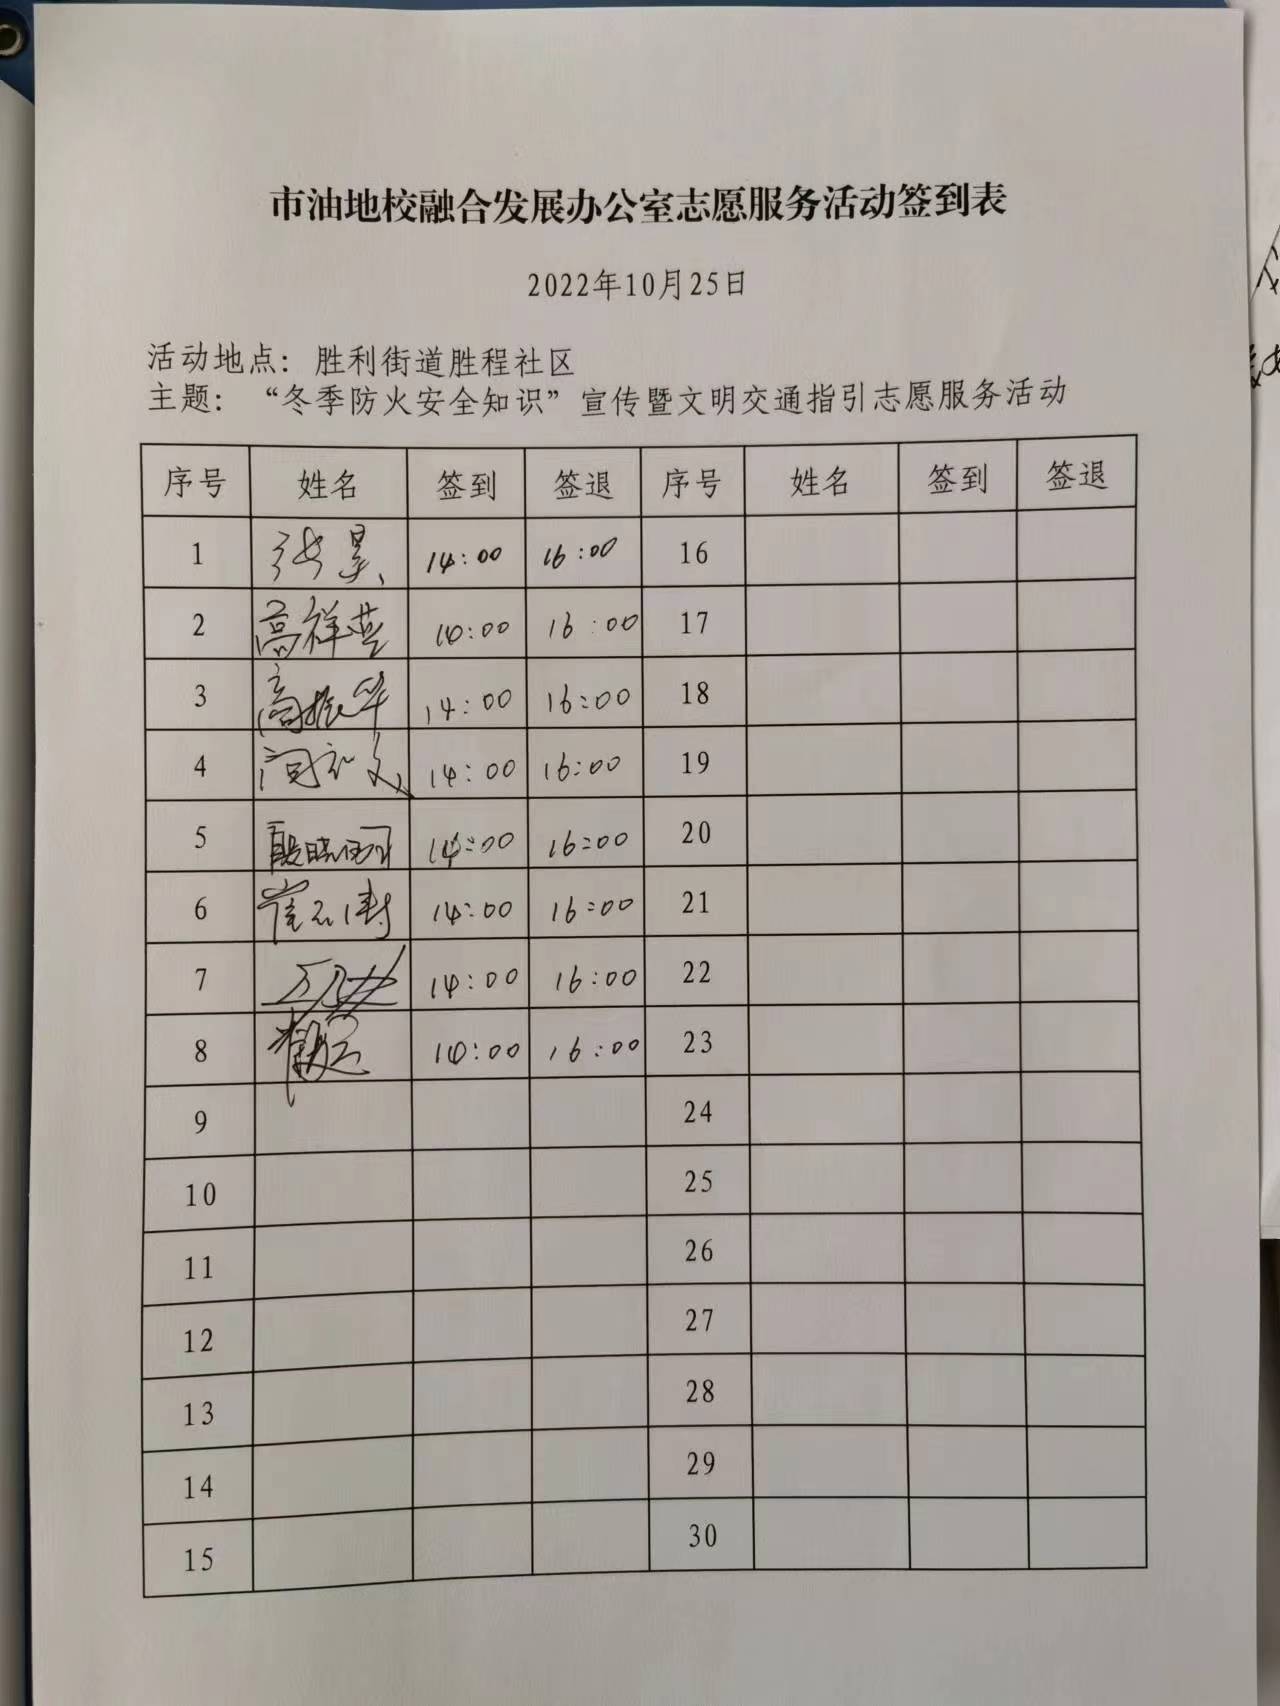 市油地校融合发展办公室志愿服务活动签到表
2022年10月25日
活动地点：胜利街道胜程社区
主题：“冬季防火安全知识”宣传暨文明交通指引志愿服务活动
序号 姓名 签到 签退 序号 姓名 签到 签退
1 张昊 14:00 16:00 16
2 高祥 14:00 16:00 17
3 高振华 14:00 16:00 18
4 14:00 16:00 19
5 14:00 16:00 20
6 14:00 16:00 21
7 14:00 16:00 22
8 14:00 16:00 23
9 24
10 25
11 26
12 27
13 28
14 29
15 30